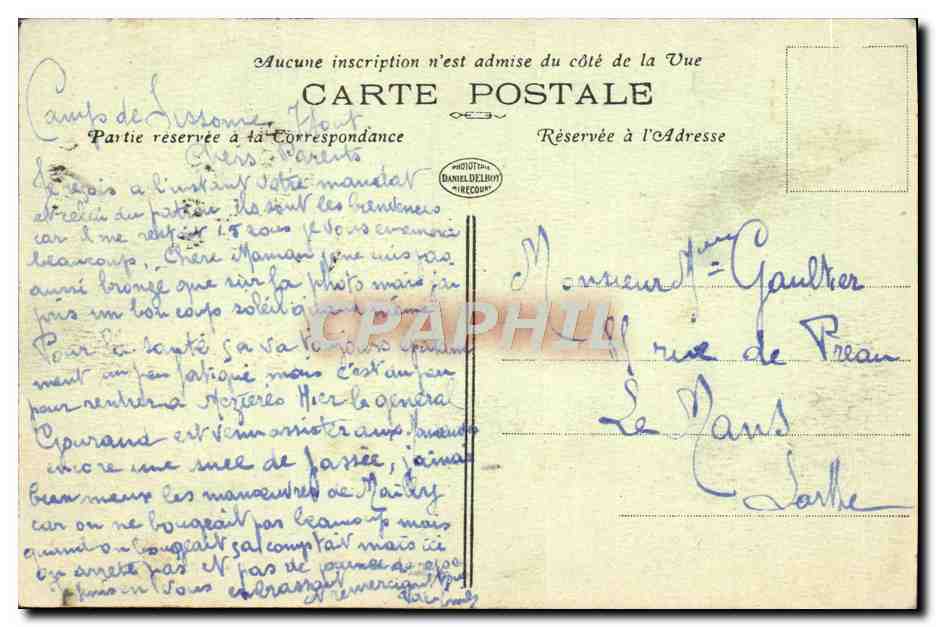 Aucune inscription n'est admise du côté de la Vue
CARTE POSTALE
Partie réservée à la Correspondance
Réservée à l'Adresse
PHOTOTYPIE
DANIEL DELBOY
MIRECOURT
Camp de Sissonne, 7 Août
Chers Parents
Je reçois a l'instant votre mandat
et celui du patron. Ils sont les
car il me restait 15 sous je vous remercie
beaucoup. Chère Maman je ne suis pas
aussi bronzé que sur la photo mais j'ai
pris un bon coup soleil quand même
Pour la santé ça va toujours
ment un peu fatigué mais c'est un peu
pour rentrer a Mézières Hier le général
Gouraud est venu assister aux
encore une suée de passée, j'aimais
bien mieux les manœuvres de Mailly
car on ne bougeait pas beaucoup mais
quand on bougeait ça comptait mais ici
on arrête pas et pas de journée de repos
vous embrassant et remerciant
Monsieur Mme Gaultier
rue de Préau
Le Mans
Sarthe
CPAPHIL